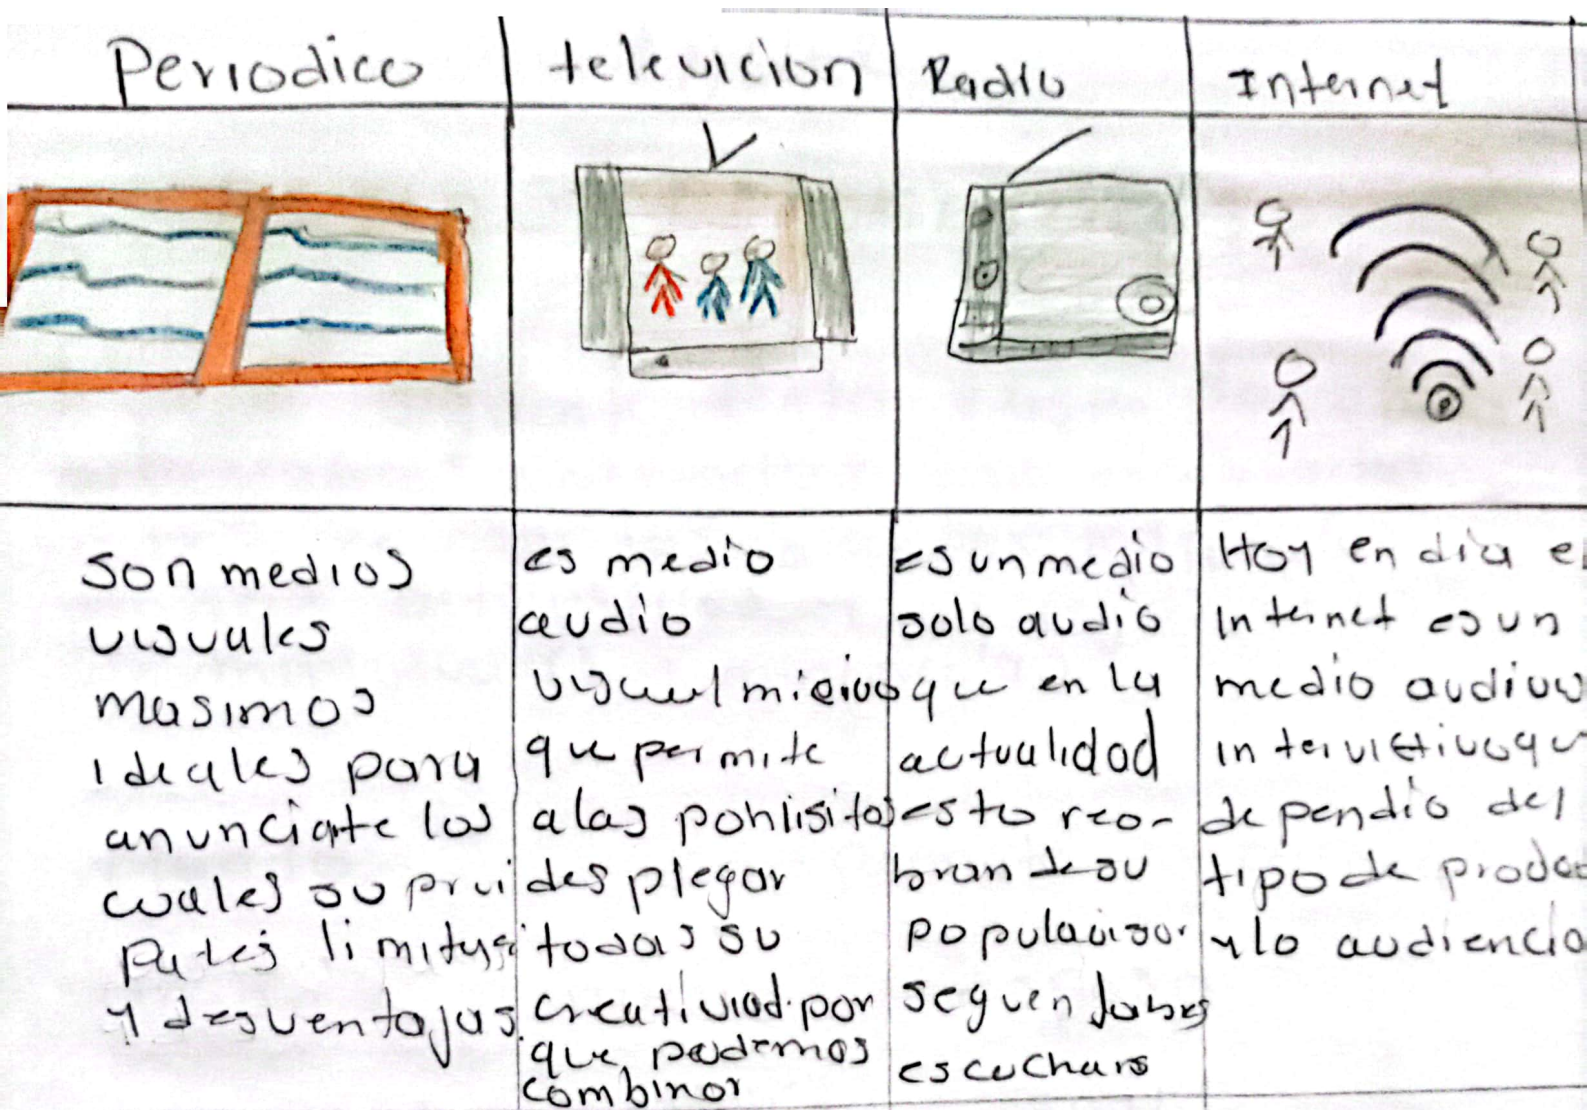 Periodico
televicion
Radio
Internet
son medios
visuales
masimos
ideales para
anunciate los
cuales su pri
pales
y desventajas
es medio
audio
visual
que permite
a las
desplegar
todas su
creatividad por
que podemos
combinar
es un medio
solo audio
que en la
actualidad
esto reo-
bran de su
seguen
escuchars
Hoy en dia el
Internet es un
medio
dependio del
tipo de
y lo audiencia